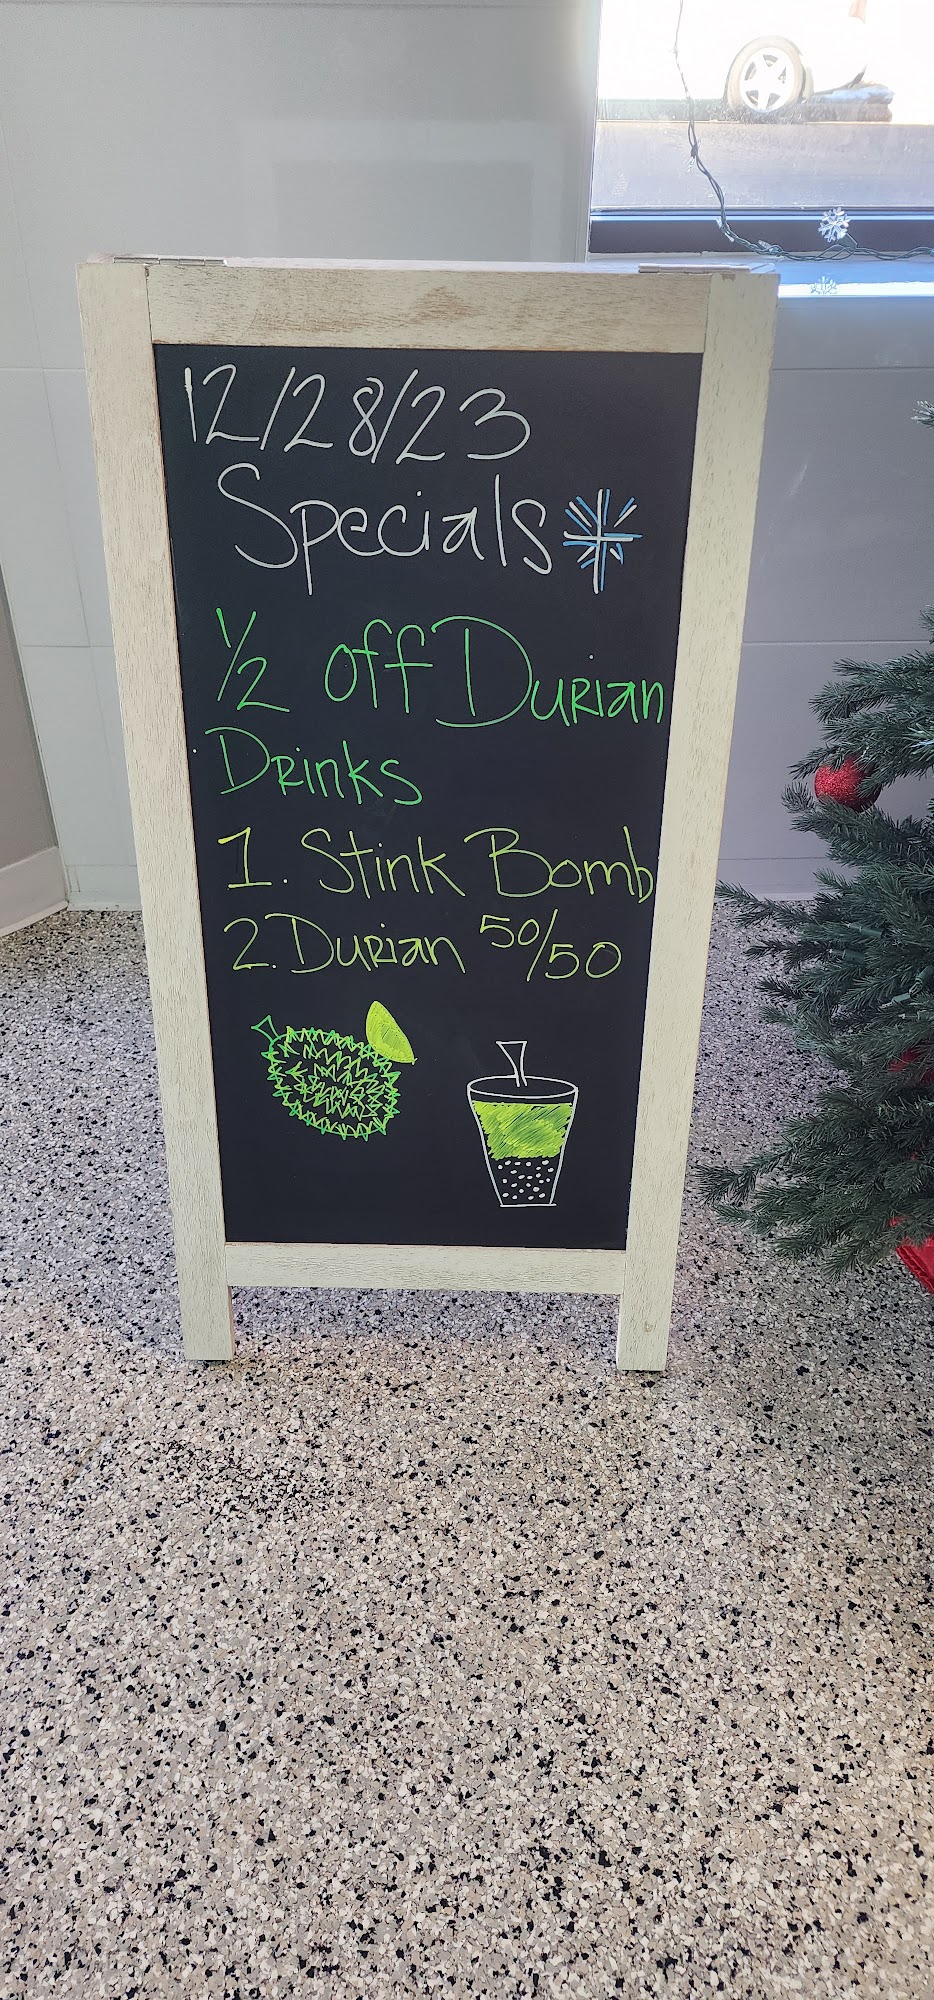 12/28/23
Specials
1/2 off Durian
Drinks
1. Stink Bomb
2. Durian 50/50